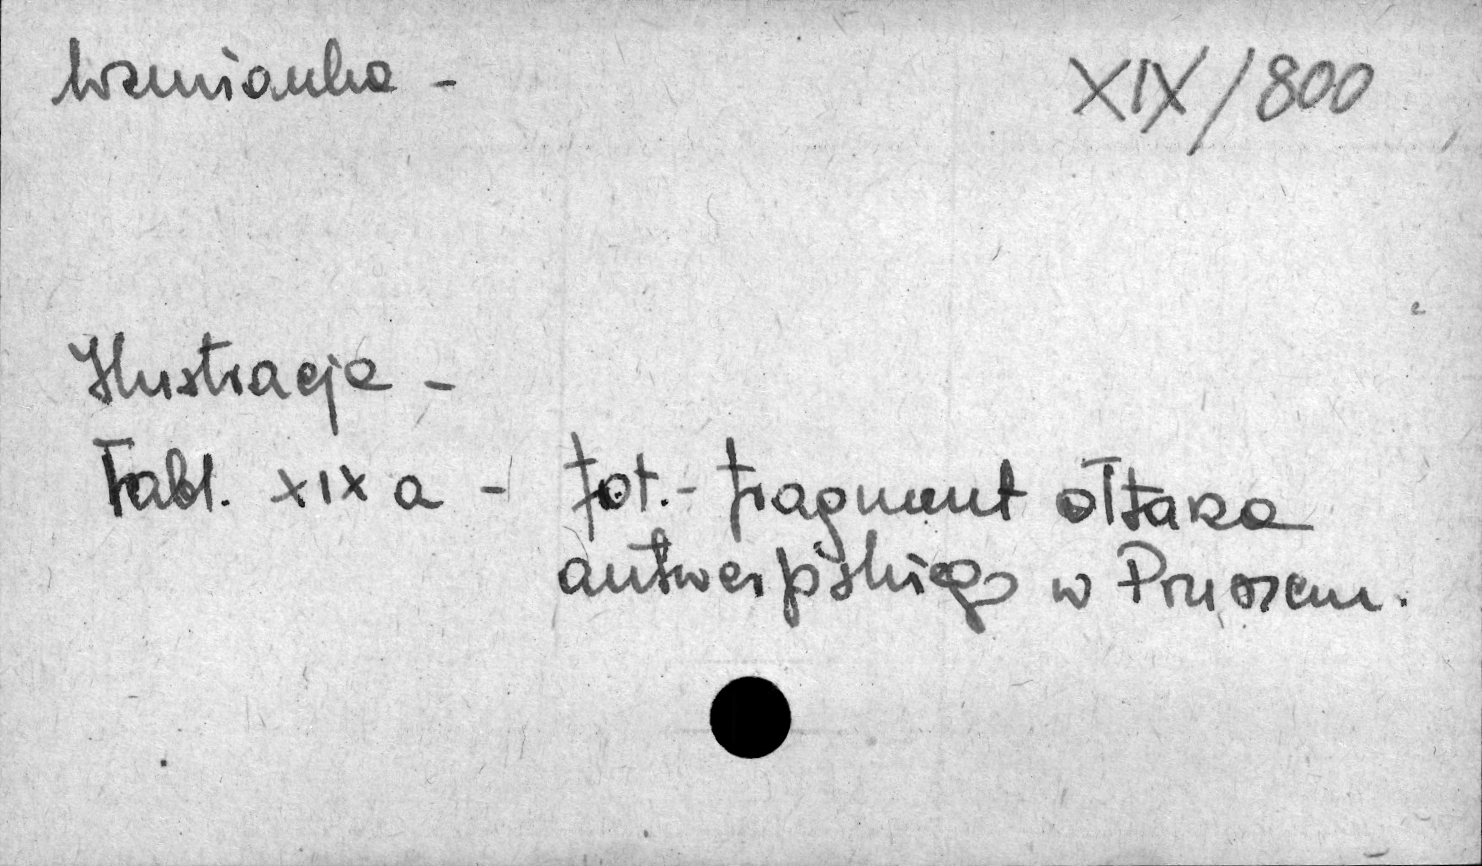 wzmianka -
XIX/800
Ilustracje -
Tabl. XIX a - fot. - fragment ołtarza
antwerpskiego w Pruszczu.